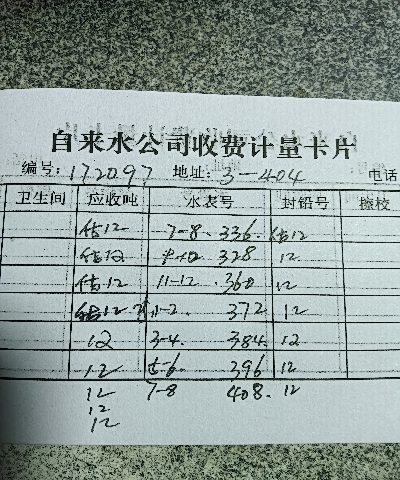 自来水公司收费计量卡片
编号: 172097 地址: 3-404 电话
卫生间 应收吨 水表号 封铅号 撩校
估12 7-8. 336. 估12
估12 328 12
估12 11-12. 360 12
估12 1-2 372 12
12 3-4. 384. 12
12 5-6 396 12
12 7-8 408. 12
12
12